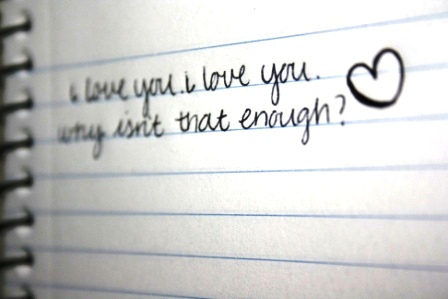 i love you. i love you.
why isn't that enough?